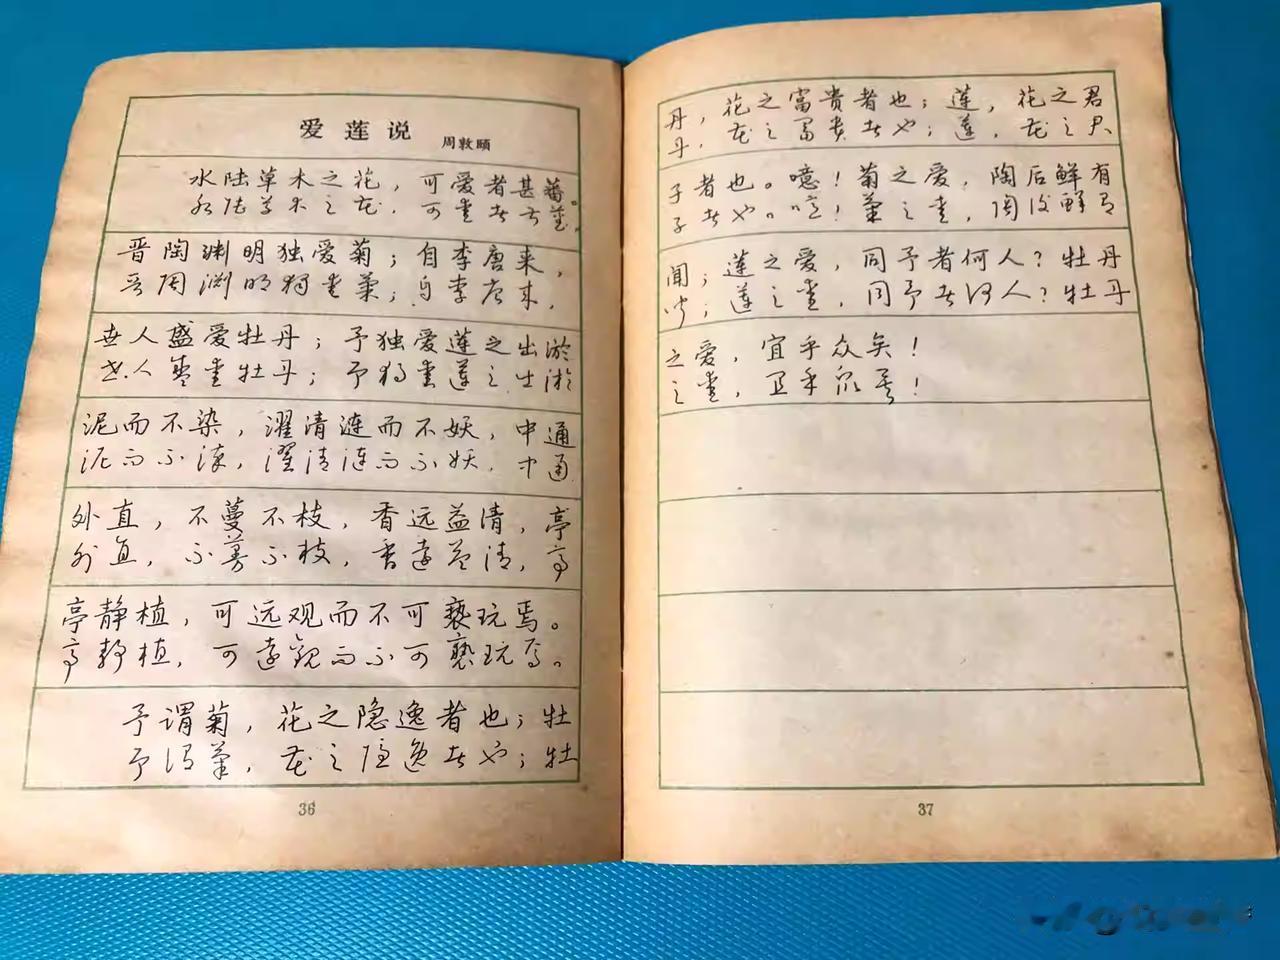 爱莲说
周敦颐
水陆草木之花，可爱者甚蕃。
水陆草木之花，可爱者甚蕃。
晋陶渊明独爱菊；自李唐来，
晋陶渊明独爱菊；自李唐来，
世人盛爱牡丹；予独爱莲之出淤
世人盛爱牡丹；予独爱莲之出淤
泥而不染，濯清涟而不妖，中通
泥而不染，濯清涟而不妖，中通
外直，不蔓不枝，香远益清，亭
外直，不蔓不枝，香远益清，亭
亭静植，可远观而不可亵玩焉。
亭静植，可远观而不可亵玩焉。
予谓菊，花之隐逸者也；牡
予谓菊，花之隐逸者也；牡
36
丹，花之富贵者也；莲，花之君
丹，花之富贵者也；莲，花之君
子者也。噫！菊之爱，陶后鲜有
子者也。噫！菊之爱，陶后鲜有
闻；莲之爱，同予者何人？牡丹
闻；莲之爱，同予者何人？牡丹
之爱，宜乎众矣！
之爱，宜乎众矣！
37